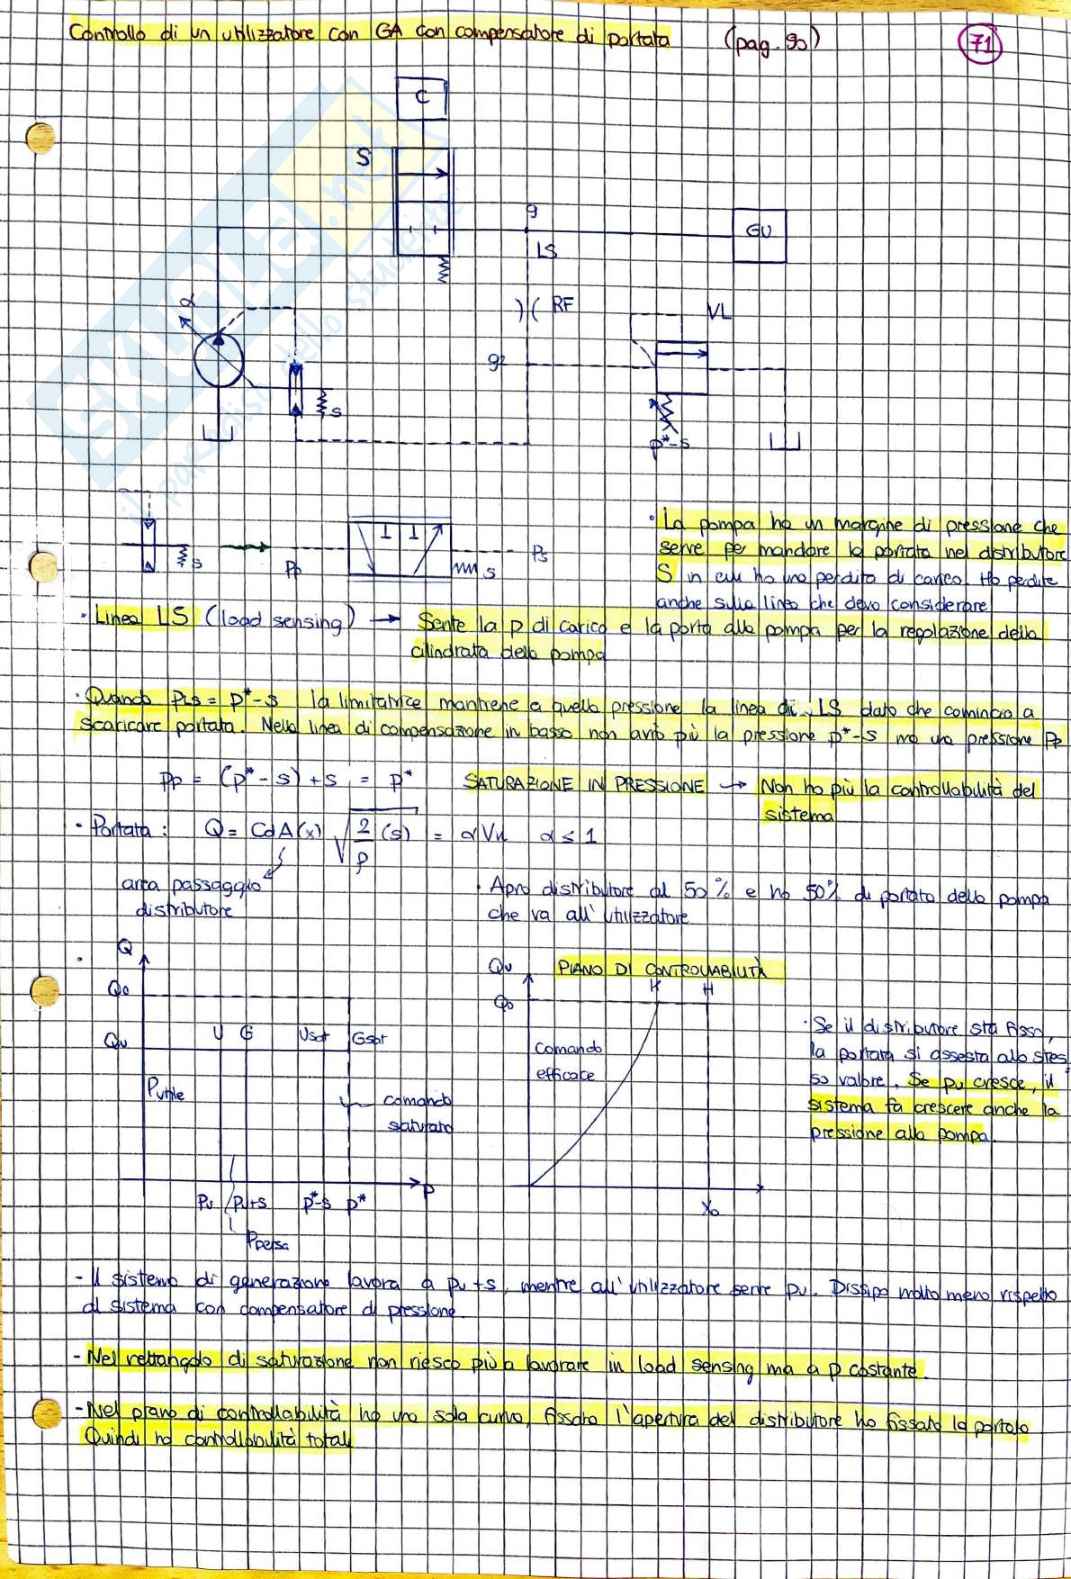 Controllo di un utilizzatore con GA con compensatore di portata (pag. 90)
71
C
S
g
LS
GU
α
)( RF
VL
g2
S
p*-s
SKUOLA.net
il paradiso dello studente
S
Pp
S
Ps
· La pompa ha un margine di pressione che
serve per mandare la portata nel distributore
S in cui ho una perdita di carico. Ho perdite
anche sulla linea che devo considerare
· Linea LS (load sensing) → Sente la p di carico e la porta alla pompa per la regolazione della
cilindrata della pompa
· Quando PLS = p*-s la limitatrice mantiene a quella pressione la linea di LS dato che comincia a
scaricare portata. Nella linea di compensazione in basso non avrò più la pressione p*-s ma una pressione Pp
Pp = (p*-s) + s = p* SATURAZIONE IN PRESSIONE → Non ho più la controllabilità del
sistema
· Portata: Q = Cd A(x) √2/ρ (s) = αVn α ≤ 1
area passaggio
distributore
· Apro distributore al 50% e ho 50% di portata della pompa
che va all'utilizzatore
Q
Qo
Qu
U G Usat Gsat
Putile
comando
saturato
Pu Pu+s p*-s p* P
Ppersa
Qu PIANO DI CONTROLLABILITÀ
Qo
K H
Comando
efficace
Xo
· Se il distributore sta fisso,
la portata si assesta allo stes
so valore. Se pu cresce, il
sistema fa crescere anche la
pressione alla pompa.
- Il sistema di generazione lavora a pu+s, mentre all'utilizzatore serve pu. Dissipo molto meno rispetto
al sistema con compensatore di pressione.
- Nel rettangolo di saturazione non riesco più a lavorare in load sensing ma a p costante.
- Nel piano di controllabilità ho una sola curva, fissata l'apertura del distributore ho fissato la portata
Quindi ho controllabilità totale